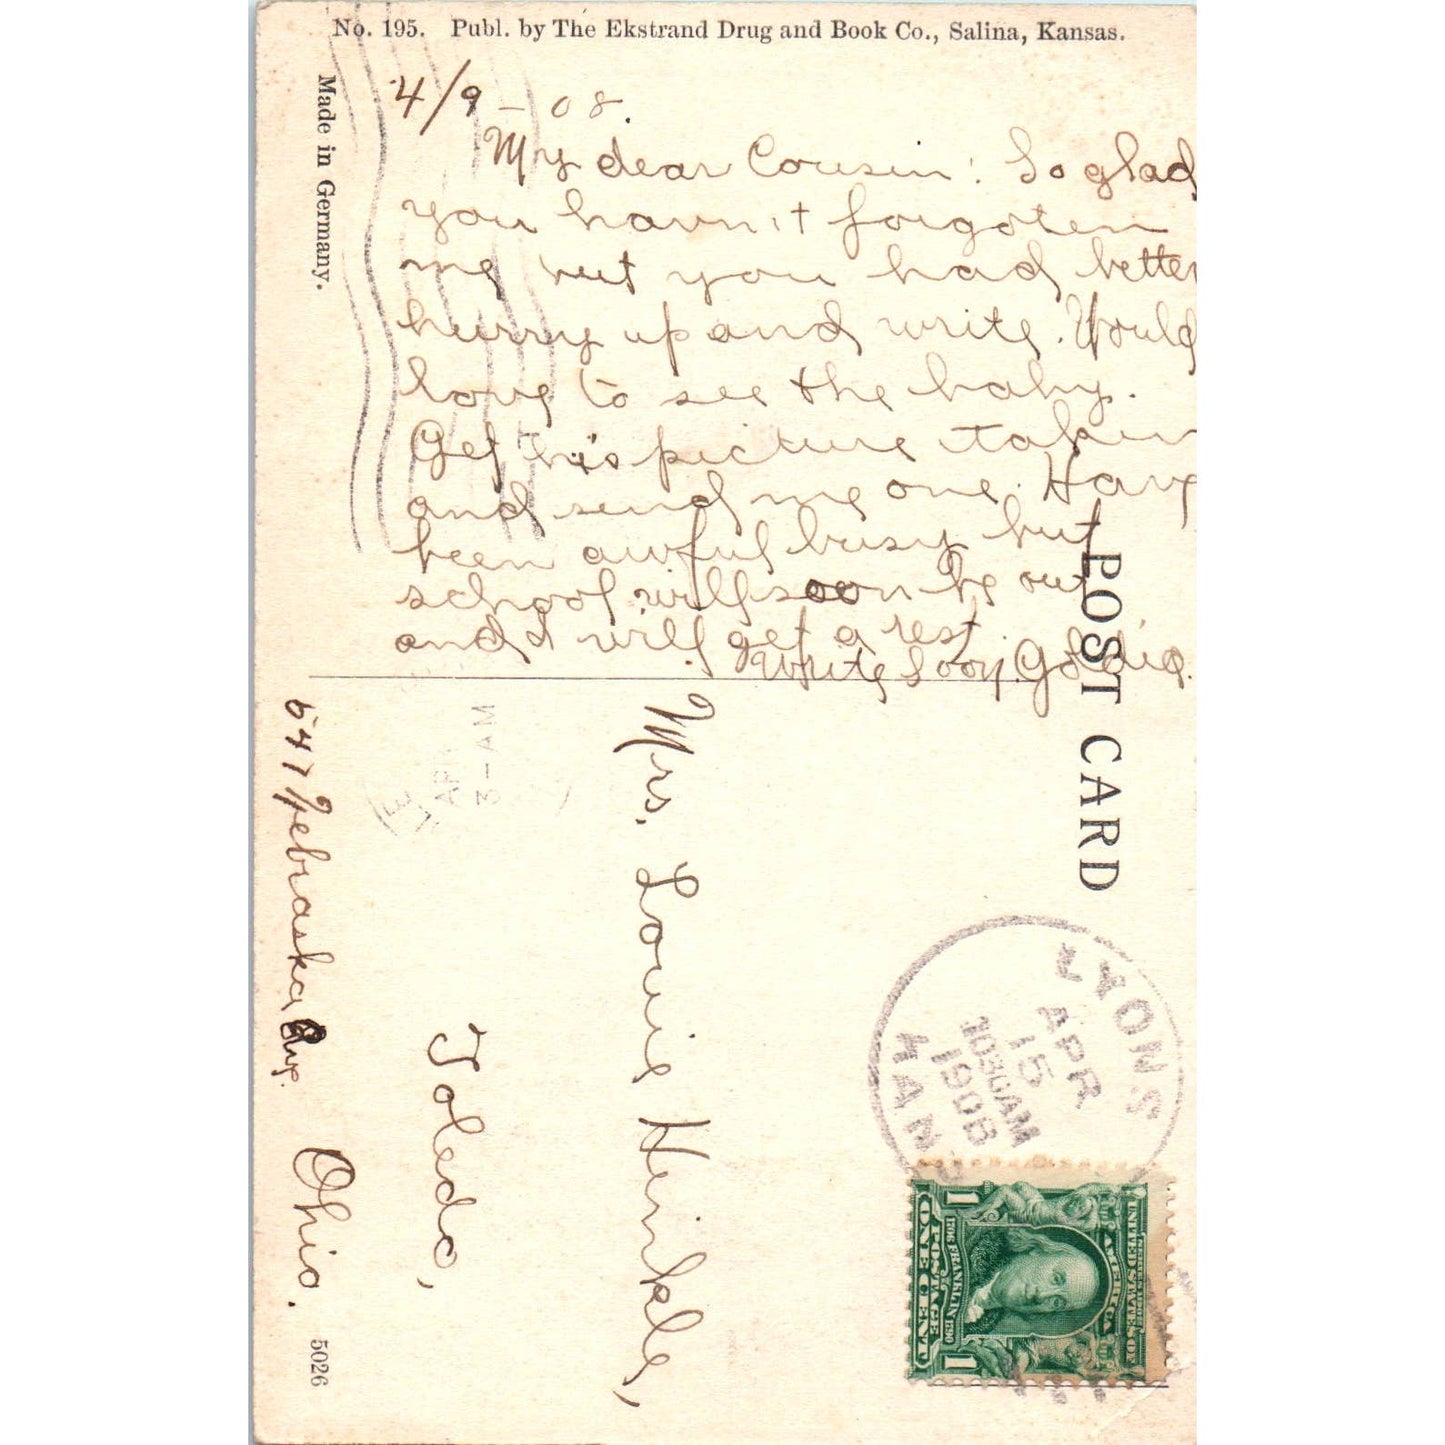 No. 195. Publ. by The Ekstrand Drug and Book Co., Salina, Kansas.
Made in Germany.
4/9-08.
My dear Cousin: So glad
you havn't forgoten
me but you had better
hurry up and write. Would
love to see the baby.
Get his picture taken
and send me one. Have
been awful busy but
school will soon be out
and I will get a rest.
Write soon. Goldie.
POST CARD
Mrs. Louie Hinkle,
Toledo,
547 Nebraska Ave. Ohio.
5026
APR
3-AM
LYONS
APR
15
1030AM
1908
KANS
UNITED STATES OF
AMERICA
FRANKLIN 1790
POSTAGE
1 ONE CENT 1